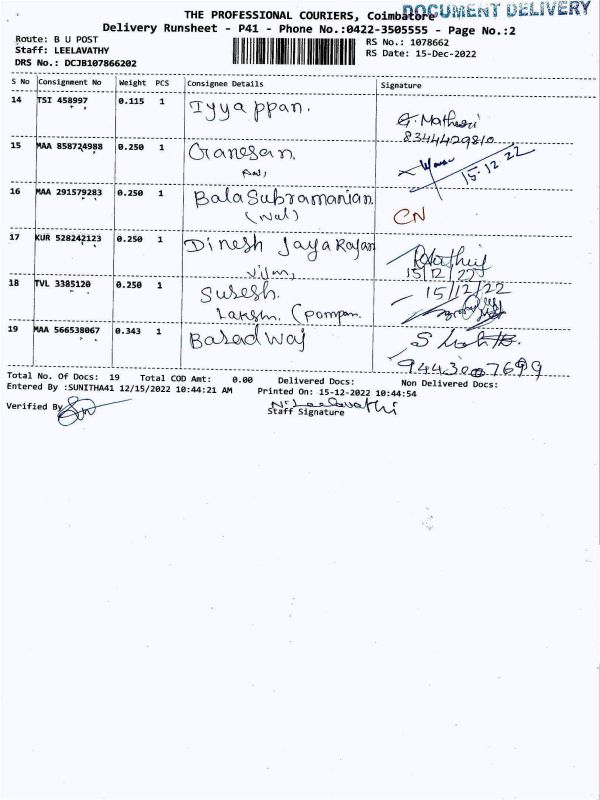 DOCUMENT DELIVERY
THE PROFESSIONAL COURIERS, Coimbatore
Delivery Runsheet - P41 - Phone No.:0422-3505555 - Page No.:2
Route: B U POST
RS No.: 1078662
Staff: LEELAVATHY
RS Date: 15-Dec-2022
DRS No.: DCJB107866202
S No Consignment No Weight PCS Consignee Details Signature
14 TSI 458997 0.115 1 Iyyappan.
G. Matheswari
8344429810
15 MAA 858724988 0.250 1 Ganesan.
15.12.22
16 MAA 291579283 0.250 1 BalaSubramanian
(Wal) CN
17 KUR 528242123 0.250 1 Dinesh JayaRajan
15/12/22
18 TVL 3385120 0.250 1 Suresh. 15/12/22
Lakshmi (Pompam
19 MAA 566538067 0.343 1 Basedwaj
Total No. Of Docs: 19 Total COD Amt: 0.00 Delivered Docs: Non Delivered Docs:
Entered By :SUNITHA41 12/15/2022 10:44:21 AM Printed On: 15-12-2022 10:44:54
Verified By
N. Leelavathi
Staff Signature